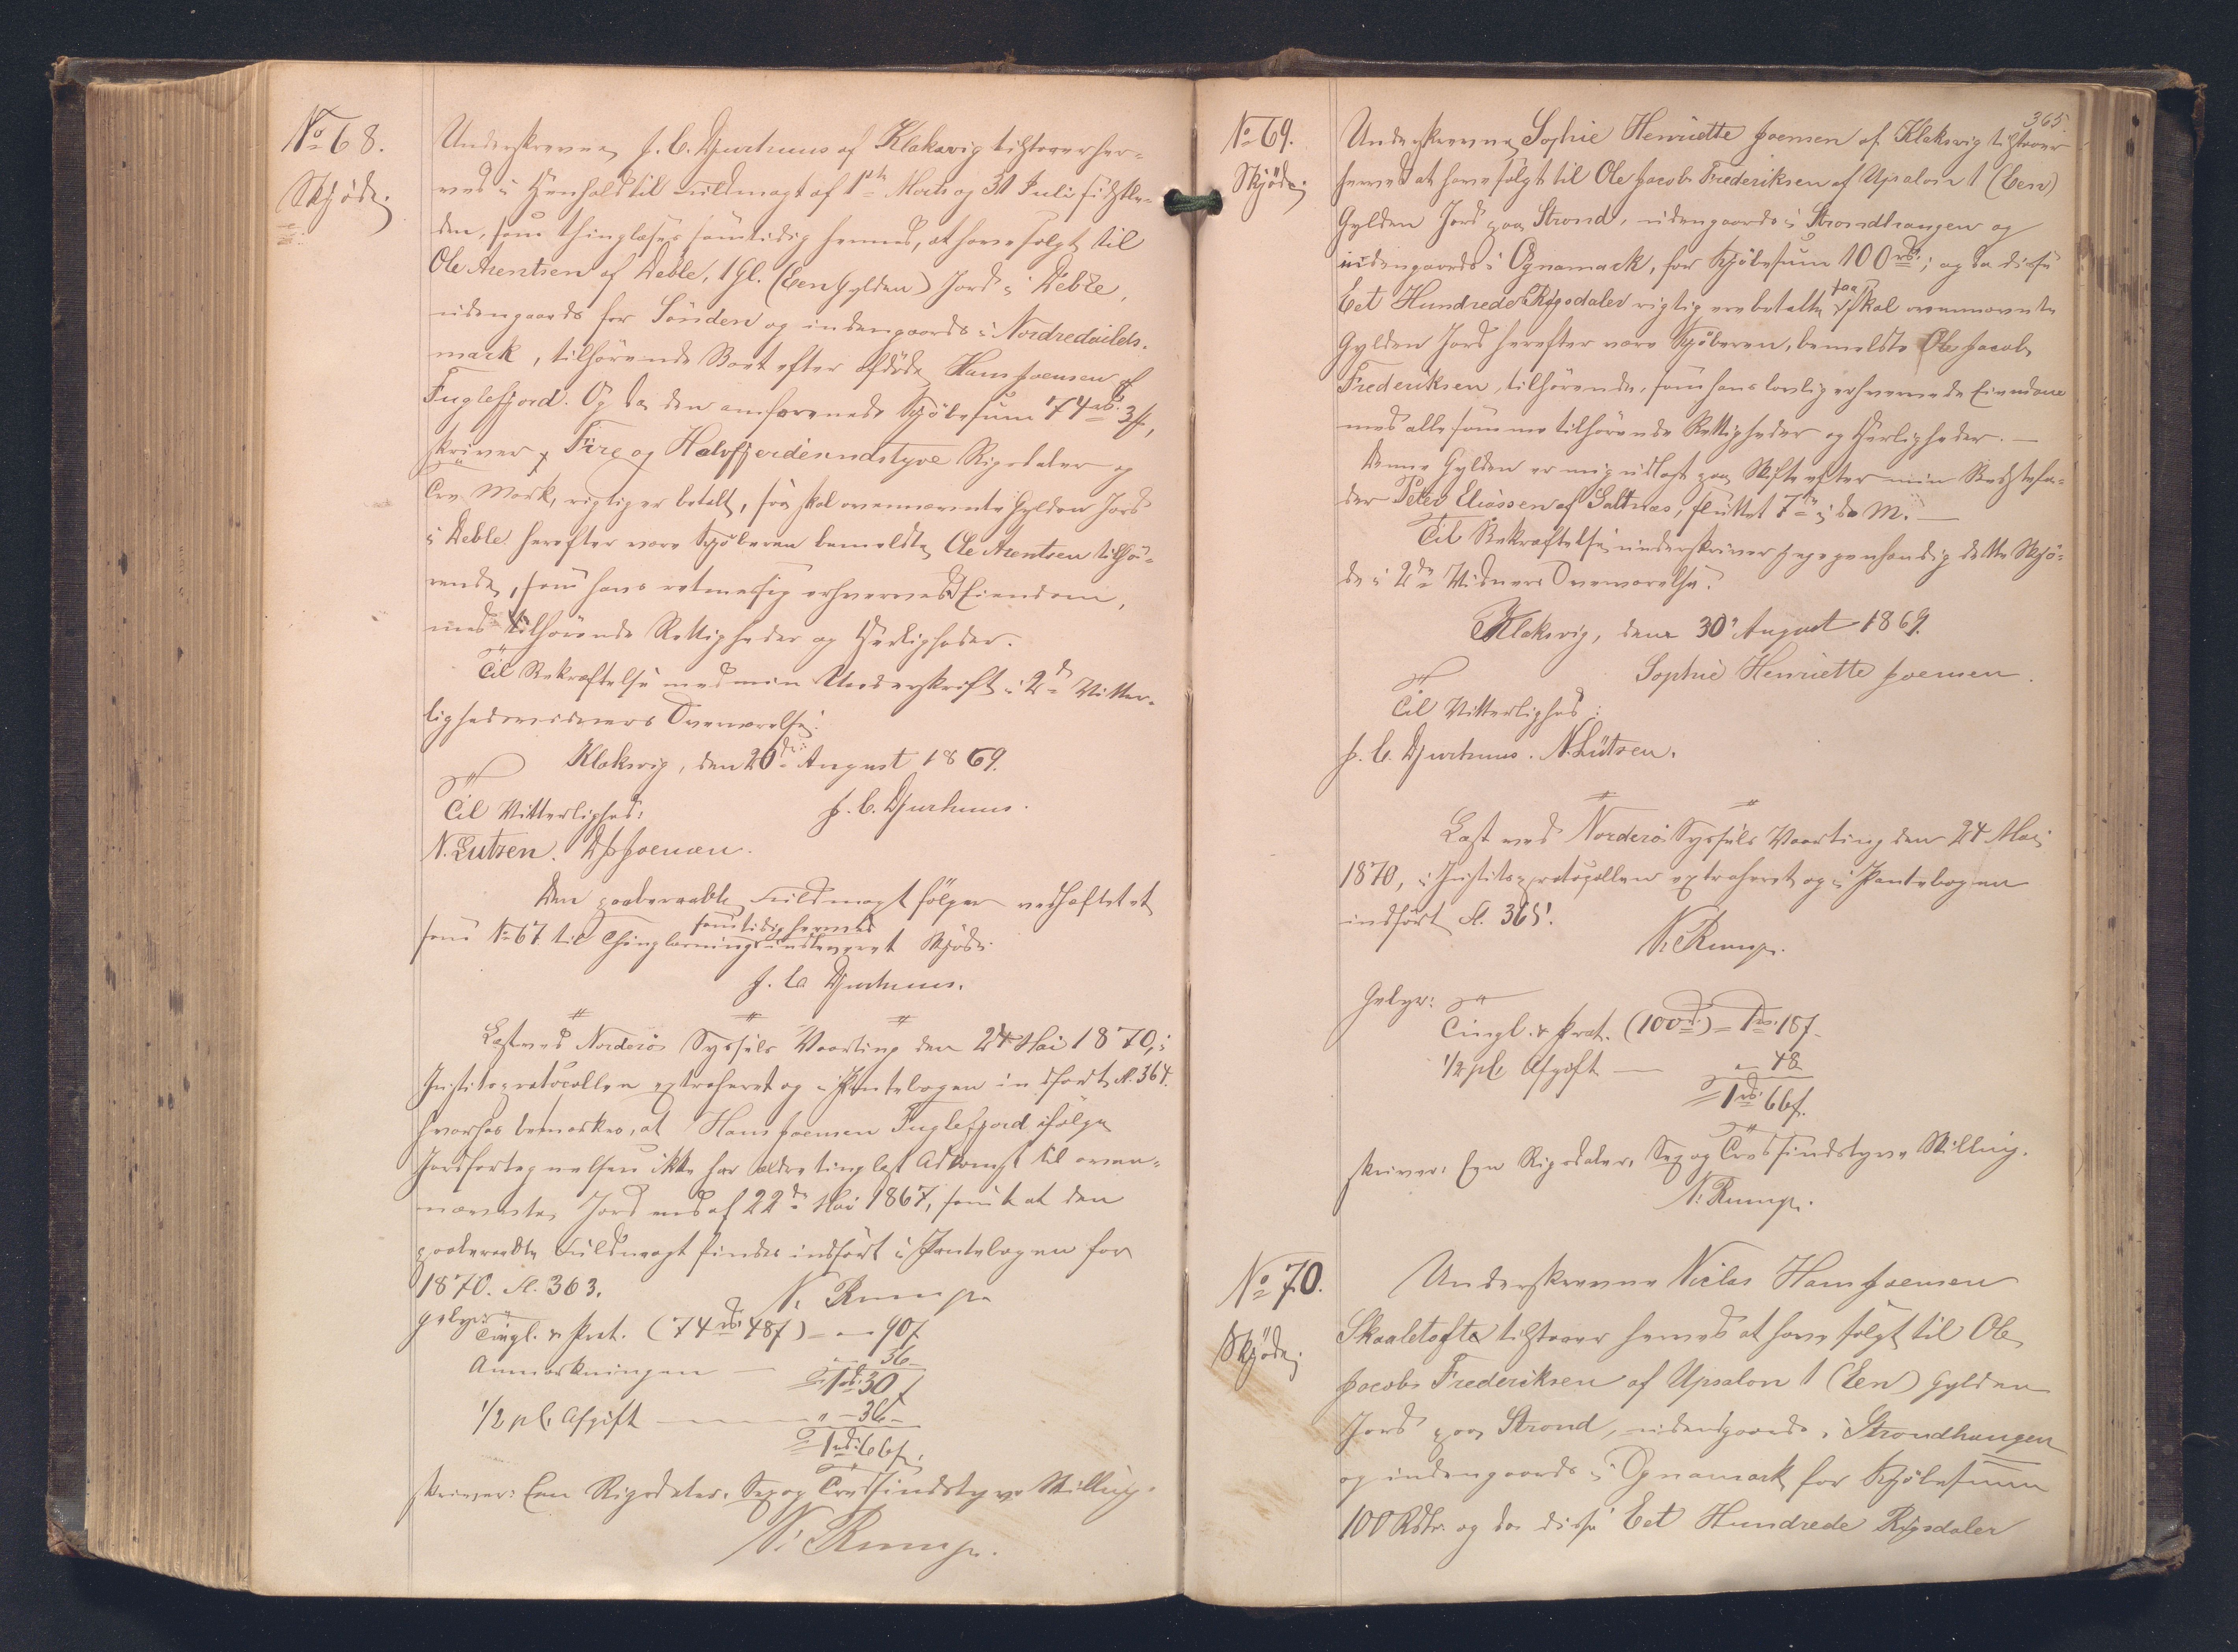 No 68.
Skjøde.
Underskrevne J. C. Djurhuus af Klaksvig tilstaaer her-
ved i Henhold til Fuldmagt af 1ste Marts og 31 Juli sidstle-
den, som thinglæses samtidig hermed, at have solgt til
Ole Arentsen af Deble, 1 Gl. (Een Gylden) Jord i Deble,
udengaards for Sönden og indengaards i Nordredeilds-
mark, tilhörende Boet efter afdöde Hans Joensen af
Fuglefjord. Og da den omforenede Kjöbesum 74 rd. 3 #,
skriver Fire og Halvfjerdsindstyve Rigsdaler og
Tre Mark, rigtig er betalt, saa skal ovennævnte Gylden Jord
i Deble herefter være Kjöberen bemeldte Ole Arentsen tilhö-
rende, som hans retmæssig erhvervede Eiendom,
med tilhörende Rettigheder og Herligheder.
Til Bekræftelse med min Underskrift i 2de Vitter-
lighedsvidners Overværelse.
Klaksvig, den 20de August 1869.
Til Vitterlighed: J. C. Djurhuus.
N. Lutzen. D J Joensen.
Den paaberaabte Fuldmagt fölger vedhæftet et
samtidig hermed
som No 67 til Thinglæsning indleveret Skjöde.
J. C. Djurhuus.
Læst ved Norderö Syssels Vaarting den 24 Mai 1870, i
Justitsprotocollen extraheret og i Pantebogen indfört fl. 364.
hvorhos bemærkes, at Hans Joensen Fuglefjord ifölge
Jordfortegnelsen ikke har ældre tinglæst Adkomst til oven-
nævnte Jord end af 22de Mai 1867, samt at den
paaberaabte Fuldmagt findes indfört i Pantebogen for
1870. fl. 363.
N. Rump.
Gebyr: Tingl. & Prot. (74 rd. 48 s) = " — 90 s
Anmærkningen — " 36 -
1 rd. 30 s
1/2 pCt. Afgift — " — 36 -
1 rd. 66 s.
skriver: Een Rigsdaler, Sex og Tredsindstyve Skilling.
N. Rump.
365.
No 69.
Skjöde.
Underskrevne Sophie Henriette Joensen af Klaksvig tilstaaer
herved at have solgt til Ole Jacob Frederiksen af Upsalon 1 (Een)
Gylden Jord paa Strond, udengaards i Strondhaugen og
indengaards i Ognamark, for Kjöbesum 100 rd.; og da disse
Eet Hundrede Rigsdaler rigtig ere betalte, saa skal ovennævnte
Gylden Jord herefter være Kjöberen, bemeldte Ole Jacob
Frederiksen, tilhörende, som hans lovlig erhvervede Eiendom
med alle samme tilhörende Rettigheder og Herligheder. —
Denne Gylden er mig udlagt paa Skifte efter min Bedstefa-
der Peter Eliassen af Saltnæs, sluttet 7de i d. M. —
Til Bekræftelse underskriver jeg egenhændig dette Skjö-
de i 2de Vidners Overværelse.
Klaksvig, den 30 August 1869.
Sophie Henriette Joensen.
Til Vitterlighed:
J. C. Djurhuus. N. Lützen.
Læst ved Norderö Syssels Vaarting den 24 Mai
1870, i Justitsprotocollen extraheret og i Pantebogen
indfört fl. 365.
N. Rump.
Gebyr:
Tingl. & Prot. (100 rd.) = 1 rd. 18 s.
1/2 pCt. Afgift — " 48
1 rd. 66 s.
skriver: Een Rigsdaler, Sex og Tredsindstyve Skilling.
N. Rump.
No 70.
Skjöde.
Underskrevne Niclas Hans Joensen
Skaaletofte tilstaaer herved at have solgt til Ole
Jacob Frederiksen af Upsalon 1 (Een) Gylden
Jord paa Strond, udengaards i Strondhaugen
og indengaards i Ognamark for Kjöbesum
100 Rdlr. og da disse Eet Hundrede Rigsdaler